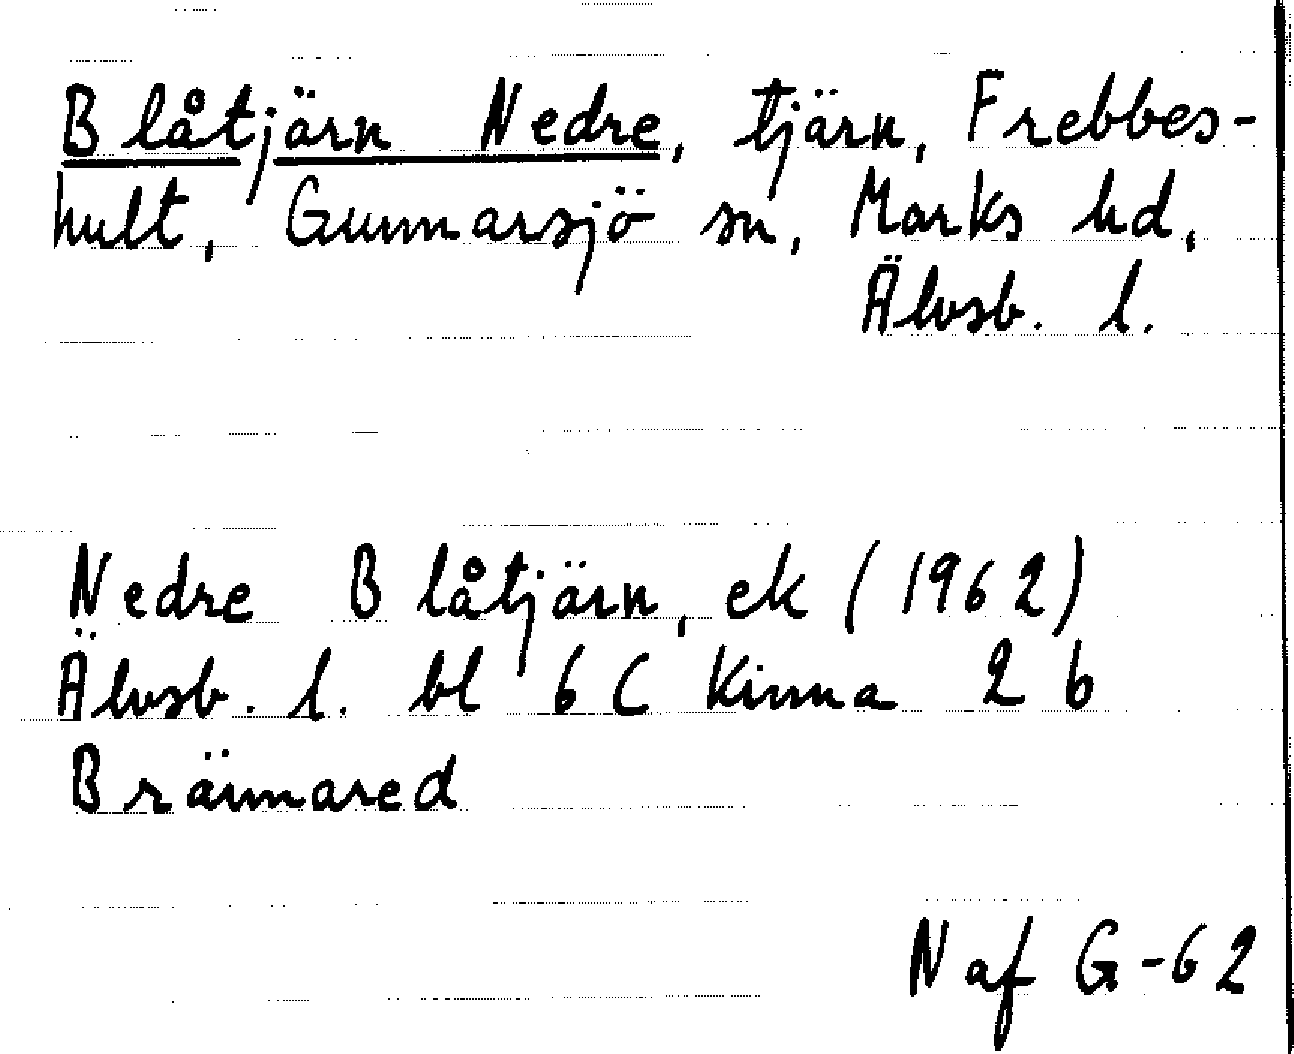 Blåtjärn Nedre, tjärn, Frebbes-
hult, Gunnarsjö sn, Marks hd,
Älvsb. l.
Nedre Blåtjärn, ek (1962)
Älvsb. l. bl 6 C Kinna 2 b
Brännared
N af G-62